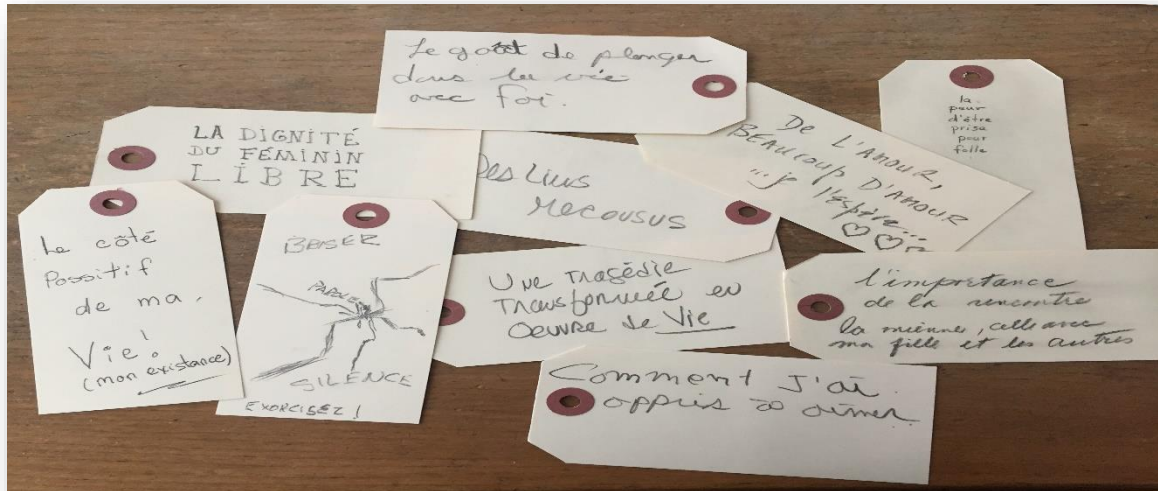 Le goût de plonger
dans la vie
avec foi.
LA DIGNITÉ
DU FÉMININ
LIBRE
Des Liens
Recousus
De L'AMOUR,
BEAUCOUP D'AMOUR
... je l'espère...
la
peur
d'être
prise
pour
folle
Le côté
Possitif
de ma
Vie!
(mon existance)
PAROLE
SILENCE
EXORCISEZ!
Une Tragédie
Transformée en
Oeuvre de Vie
l'importance
de la rencontre
la mienne, celle avec
ma fille et les autres
Comment J'ai
appris à aimer